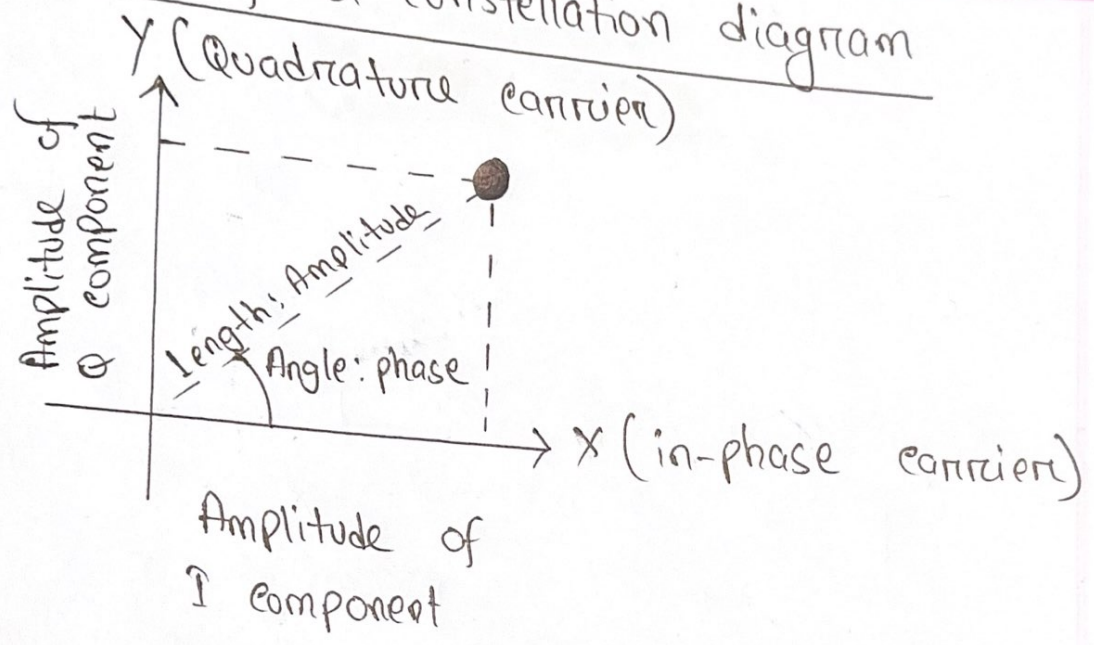 constellation diagram
Y (Quadrature carrier)
Amplitude of
Q component
Length: Amplitude
Angle: phase
X (in-phase carrier)
Amplitude of
I component